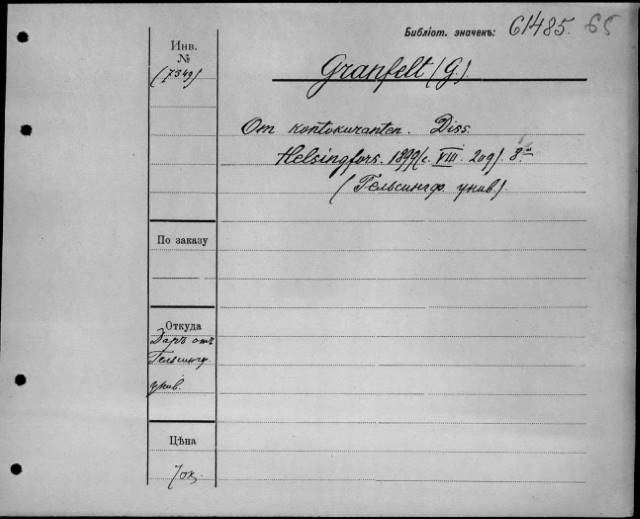 Библіот. значекъ: 61485. 65
Инв.
№
(7349)
Granfelt (G.)
Om kontokuranten. Diss.
Helsingfors. 1899 (с. VIII. 209). 8°
(Гельсингф. унив.)
По заказу
Откуда
Даръ отъ
Гельсингф.
унив.
Цѣна